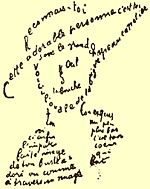 Reconnais-toi
Cette adorable personne c'est toi
Sous le grand chapeau canotier
Œil
Nez
La bouche
Voici l'ovale de ta figure
Ton cou exquis
Voici enfin
l'impar
faite image
de ton buste a
doré vu comme
à travers un nuage
Un peu
plus bas
c'est ton
cœur
qui
bat